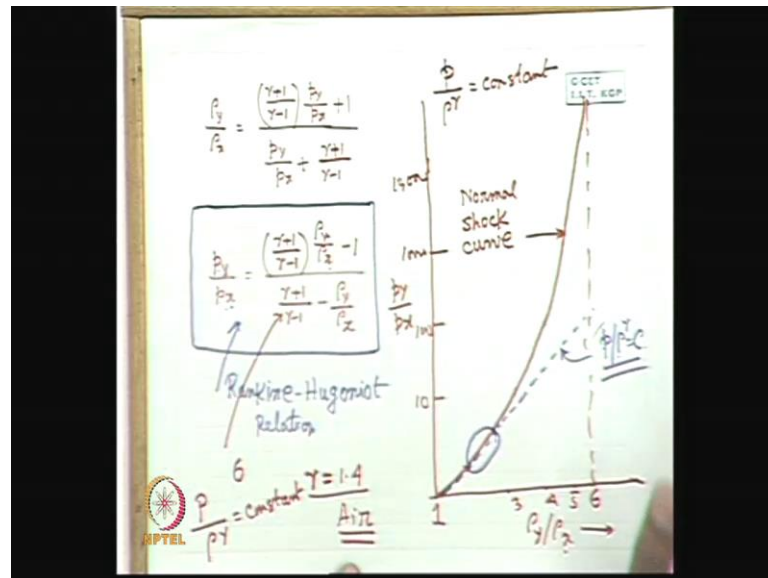 ρy/ρx = ((γ+1)/(γ-1) py/px + 1) / (py/px + (γ+1)/(γ-1))
py/px = ((γ+1)/(γ-1) ρy/ρx - 1) / ((γ+1)/(γ-1) - ρy/ρx)
Rankine-Hugoniot
Relation
6
p/ρ^γ = constant γ = 1.4
Air
NPTEL
p/ρ^γ = constant
C CET
I.I.T. KGP
Normal
shock
curve
1000
py/px
100
p/ρ^γ = C
10
1 3 4 5 6
ρy/ρx →